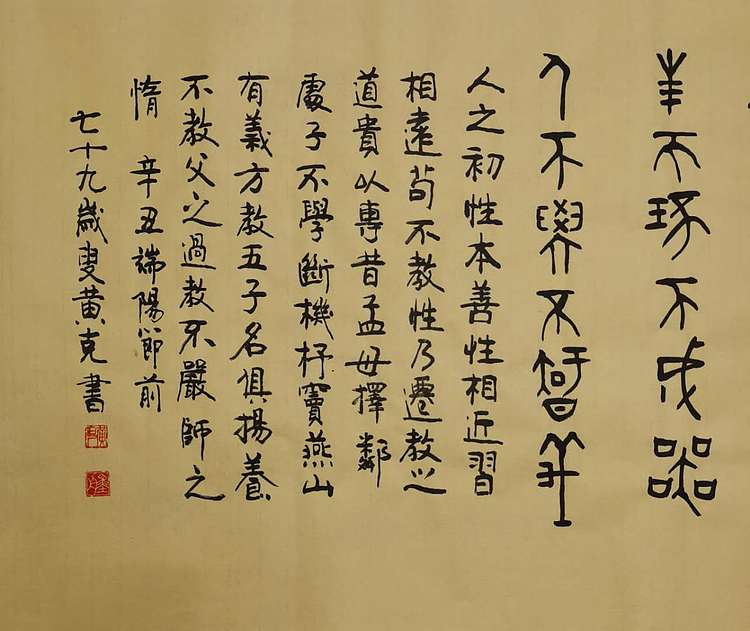 玉不琢不成器
人不學不智義
人之初性本善性相近習
相遠苟不教性乃遷教之
道貴以專昔孟母擇鄰
處子不學斷機杼竇燕山
有義方教五子名俱揚養
不教父之過教不嚴師之
惰 辛丑端陽節前
七十九歲叟黃克書